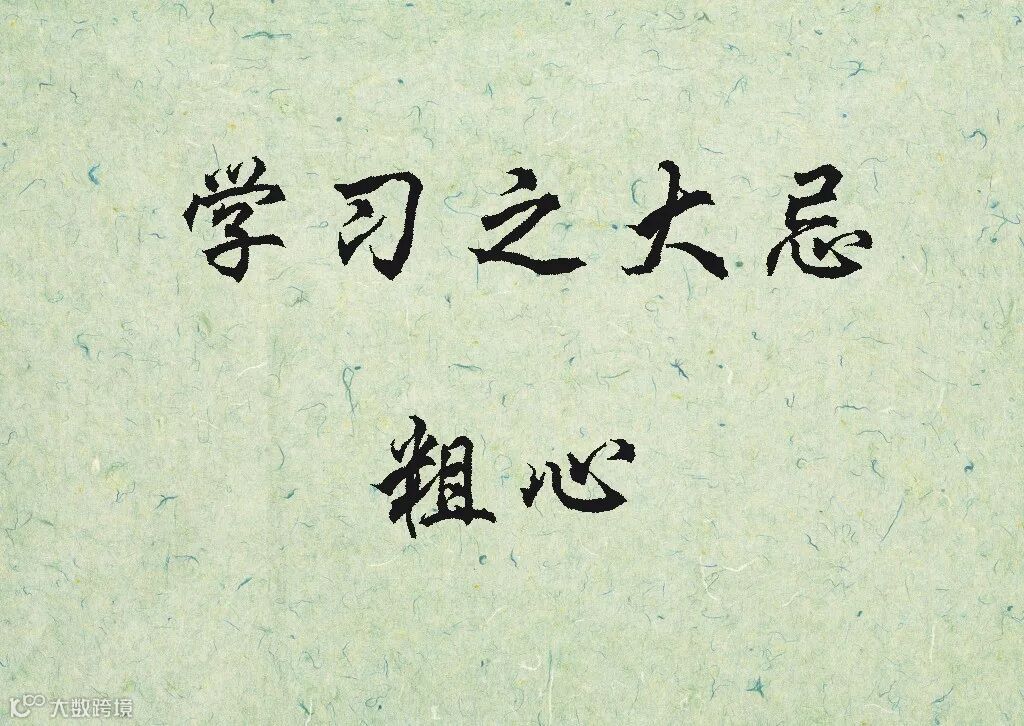 学习之大忌
粗心
大数跨境